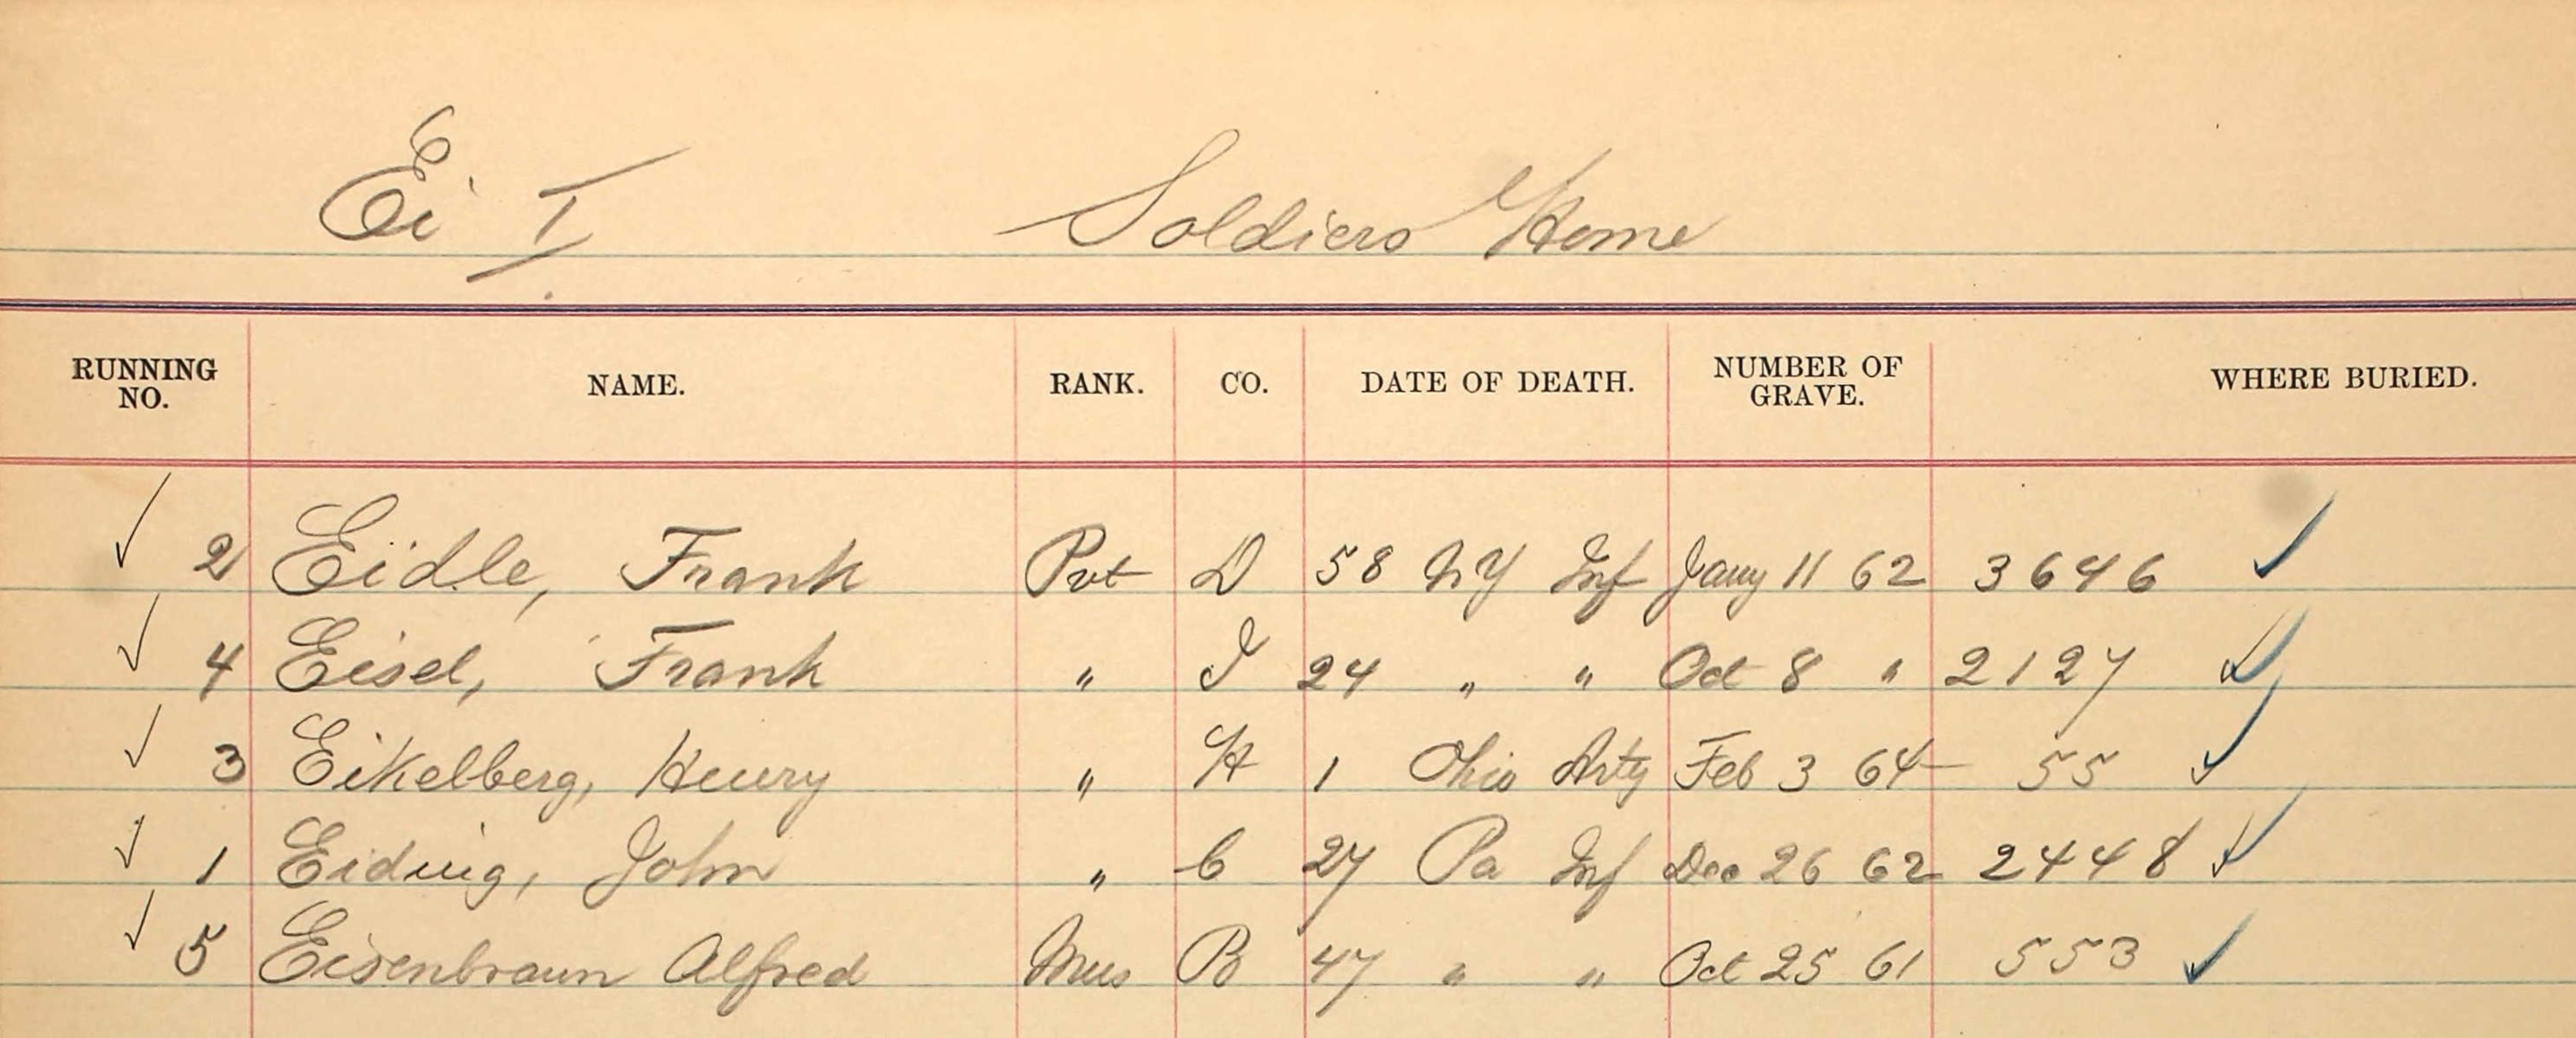 Ei I Soldiers Home
RUNNING NO. NAME. RANK. CO. DATE OF DEATH. NUMBER OF GRAVE. WHERE BURIED.
✓ 2 Eidle, Frank Pvt D 58 NY Inf Jany 11 62 3646 ✓
✓ 4 Eisel, Frank " I 24 " " Oct 8 " 2127 ✓
✓ 3 Eikelberg, Henry " H 1 Ohio Arty Feb 3 64 55 ✓
✓ 1 Eiding, John " C 27 Pa Inf Dec 26 62 2448 ✓
✓ 5 Eisenbraun Alfred Mus B 47 " " Oct 25 61 553 ✓